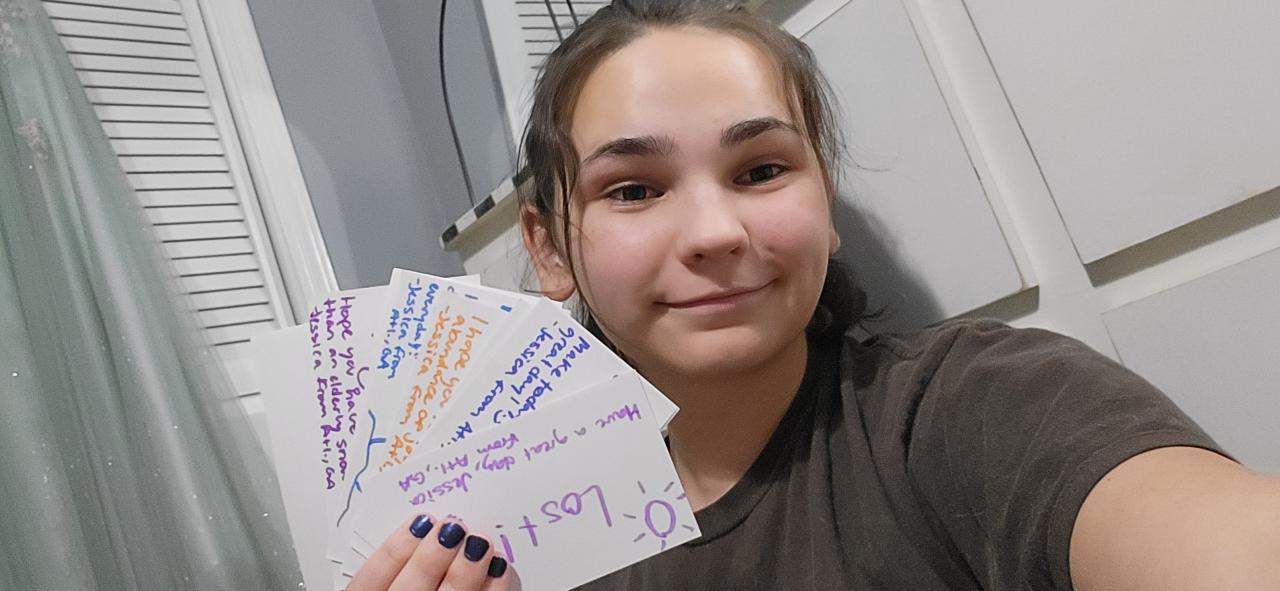 Hope you have
than an elderly snow-
Jessica from Atl., GA
everyday!
-Jessica from
Atl., GA
I hope you
abundance of jo
-Jessica from Atl.
Make today
great day! :)
Jessica from Atl.
Have a great day, Jessica
from Atl., GA
Lost!